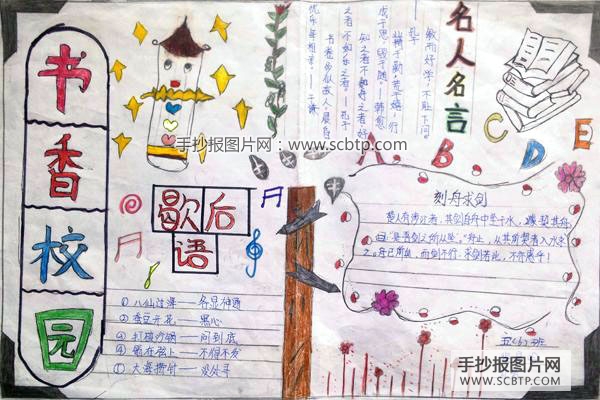 书香校园
名人名言
敏而好学,不耻下问。
—孔子
业精于勤,荒于嬉;行
成于思,毁于随。—韩愈
知之者不如好之者,好
之者不如乐之者。—孔子
书卷多似故人,晨昏
忧乐每相亲。—于谦
手抄报图片网:www.scbtp.com
A B C D E
歇后
语
① 八仙过海——各显神通
② 蚕豆开花——黑心
③ 打破沙锅——问到底
④ 箭在弦上——不得不发
① 大海捞针——没处寻
刻舟求剑
楚人有涉江者,其剑自舟中坠于水,遽契其舟
曰:“是吾剑之所从坠。”舟止,从其所契者入水求
之。舟已行矣,而剑不行,求剑若此,不亦惑乎!
五(6)班
手抄报图片网
WWW.SCBTP.COM